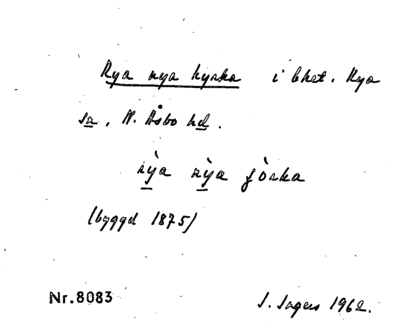 Rya nya kyrka i bhet. Rya
sn, N. Åsbo hd.
rỳa nỳa ɟörka
(byggd 1875)
Nr.8083 J. Ingers 1962.